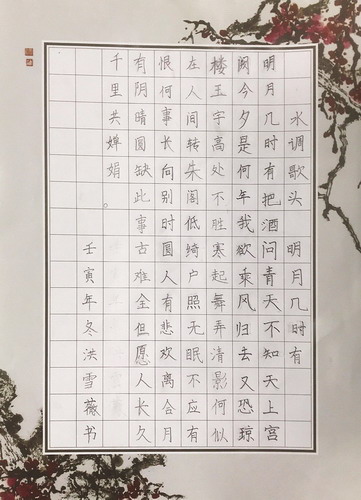 水调歌头 明月几时有
明月几时有把酒问青天不知天上宫
阙今夕是何年我欲乘风归去又恐琼
楼玉宇高处不胜寒起舞弄清影何似
在人间转朱阁低绮户照无眠不应有
恨何事长向别时圆人有悲欢离合月
有阴晴圆缺此事古难全但愿人长久
千里共婵娟。
壬寅年冬洪雪薇书